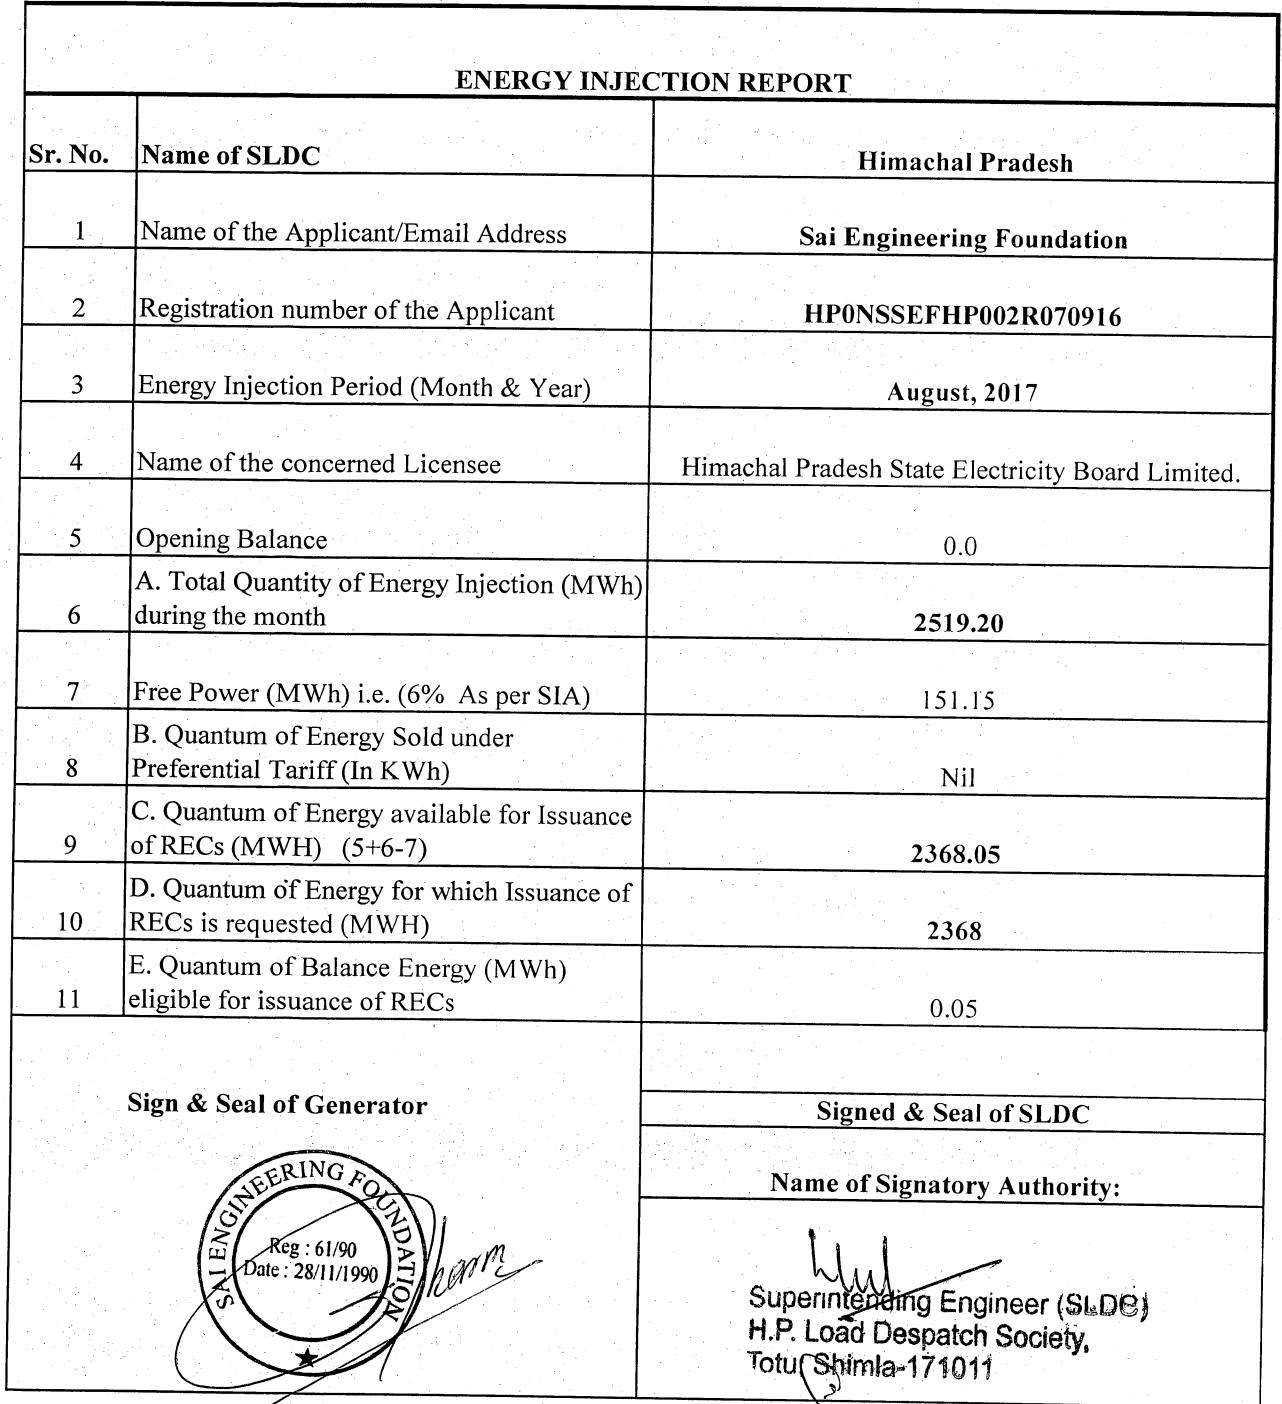 ENERGY INJECTION REPORT
Sr. No. Name of SLDC Himachal Pradesh
1 Name of the Applicant/Email Address Sai Engineering Foundation
2 Registration number of the Applicant HP0NSSEFHP002R070916
3 Energy Injection Period (Month & Year) August, 2017
4 Name of the concerned Licensee Himachal Pradesh State Electricity Board Limited.
5 Opening Balance 0.0
A. Total Quantity of Energy Injection (MWh)
6 during the month 2519.20
7 Free Power (MWh) i.e. (6% As per SIA) 151.15
B. Quantum of Energy Sold under
8 Preferential Tariff (In KWh) Nil
C. Quantum of Energy available for Issuance
9 of RECs (MWH) (5+6-7) 2368.05
D. Quantum of Energy for which Issuance of
10 RECs is requested (MWH) 2368
E. Quantum of Balance Energy (MWh)
11 eligible for issuance of RECs 0.05
Sign & Seal of Generator
Signed & Seal of SLDC
Name of Signatory Authority:
SAI ENGINEERING FOUNDATION
Reg : 61/90
Date : 28/11/1990
Superintending Engineer (SLDC)
H.P. Load Despatch Society,
Totu, Shimla-171011